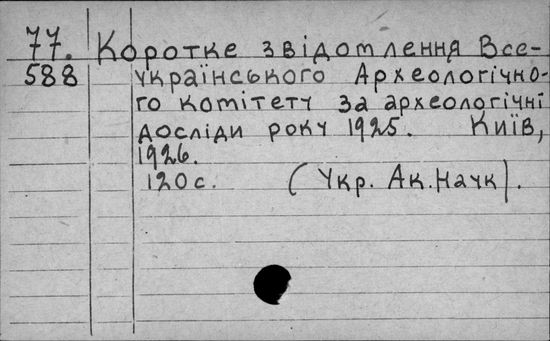 77. Коротке звідомлення Все-
588 українського Археологічно-
го комітету за археологічні
досліди року 1925. Київ,
1926.
120 с. (Укр. Ак. Наук).